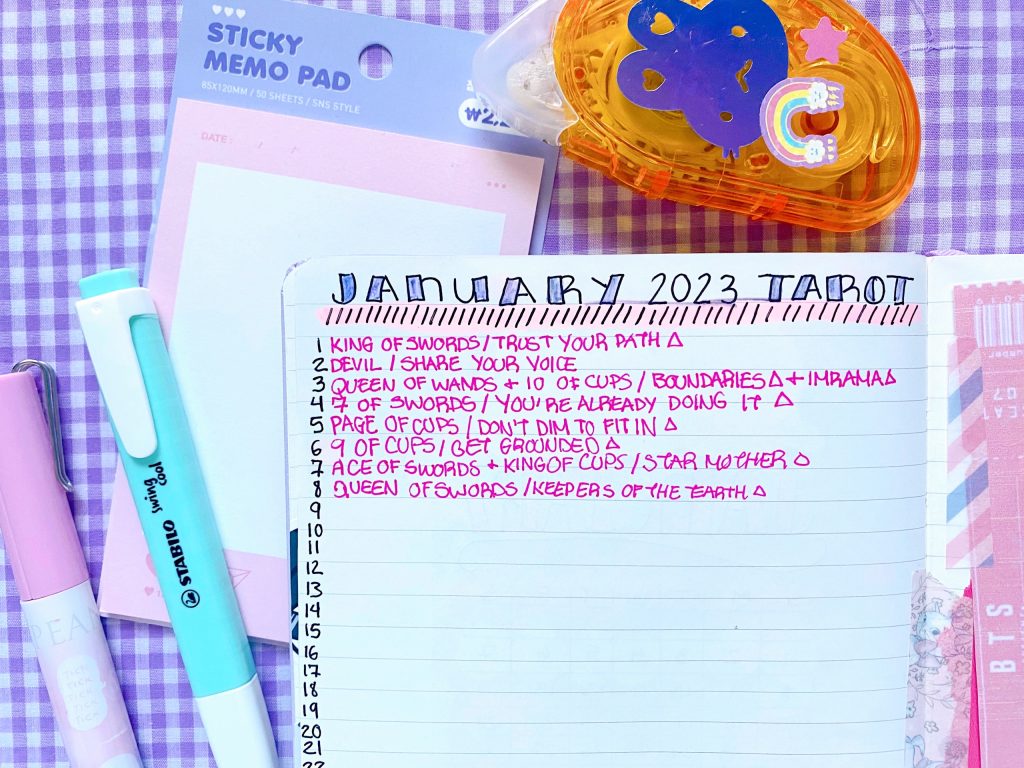 STICKY
MEMO PAD
85X120MM / 50 SHEETS / SNS STYLE
₩2,
DATE
JANUARY 2023 TAROT
1 KING OF SWORDS / TRUST YOUR PATH △
2 DEVIL / SHARE YOUR VOICE
3 QUEEN OF WANDS + 10 OF CUPS / BOUNDARIES △ + IMRAMA △
4 7 OF SWORDS / YOU'RE ALREADY DOING IT △
5 PAGE OF CUPS / DON'T DIM TO FIT IN △
6 9 OF CUPS / GET GROUNDED △
7 ACE OF SWORDS + KING OF CUPS / STAR MOTHER △
8 QUEEN OF SWORDS / KEEPERS OF THE EARTH △
9
10
11
12
13
14
15
16
17
18
19
20
21
22
STABILO swing cool
TICK
TICK
TICK
TICK
TICK
BTS